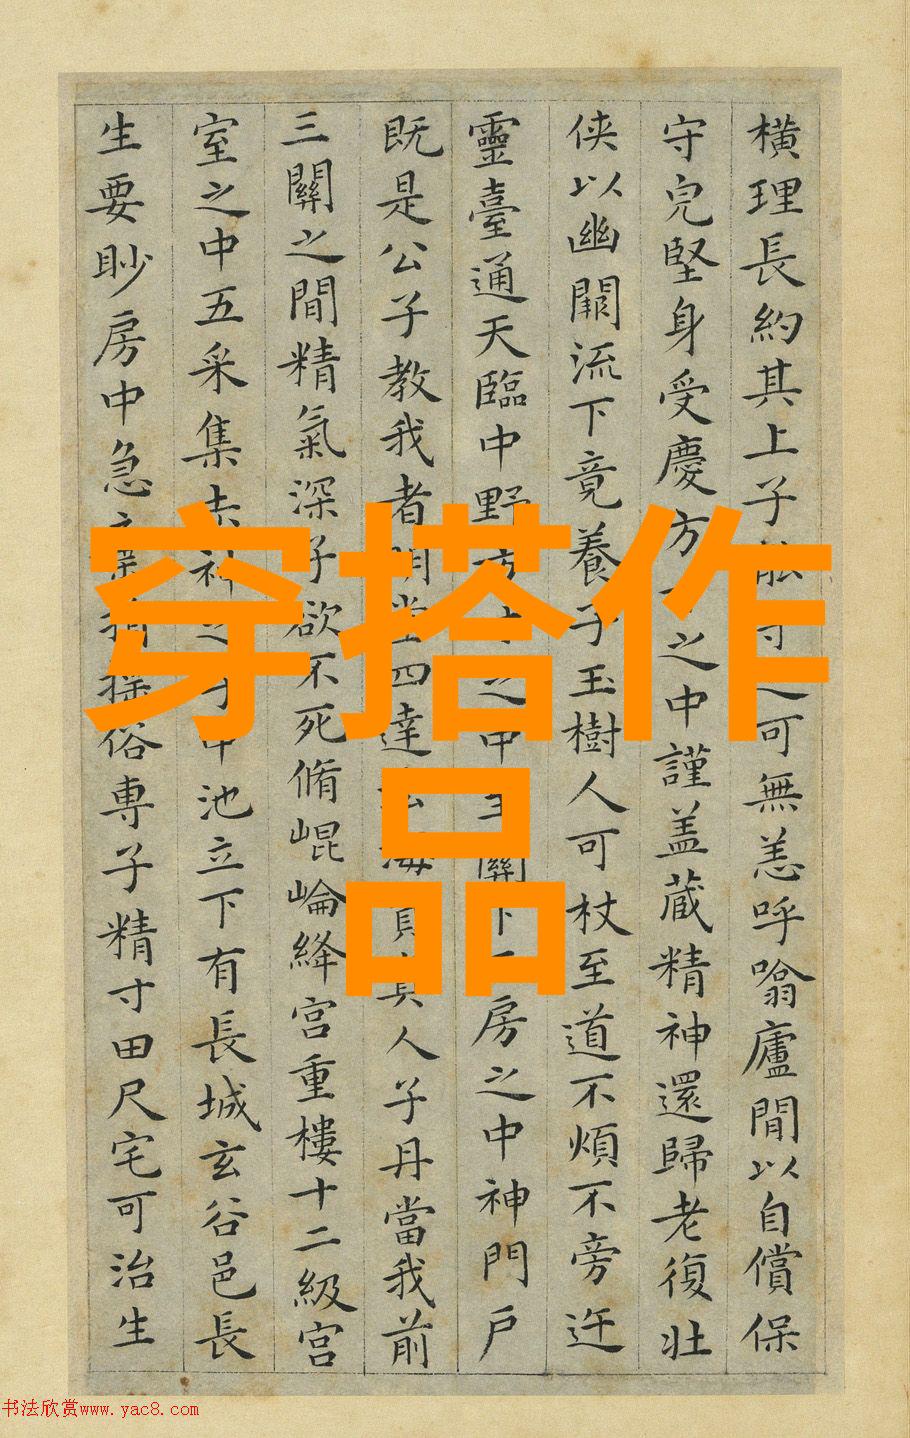 橫理長約其上子能守之可無恙呼噏廬間以自償保
守皃堅身受慶方寸之中謹盖蔵精神還歸老復壯
俠以幽闕流下竟養子玉樹人可杖至道不煩不旁迕
靈臺通天臨中野方寸之中至關下房之中神門戶
既是公子教我者明堂四達法海員真人子丹當我前
三關之間精氣深子欲不死脩崐崘絳宮重樓十二級宮
室之中五采集赤神之子中池立下有長城玄谷邑長
生要眇房中急捐俗專子精寸田尺宅可治生
穿搭作
品
书法欣赏www.yac8.com